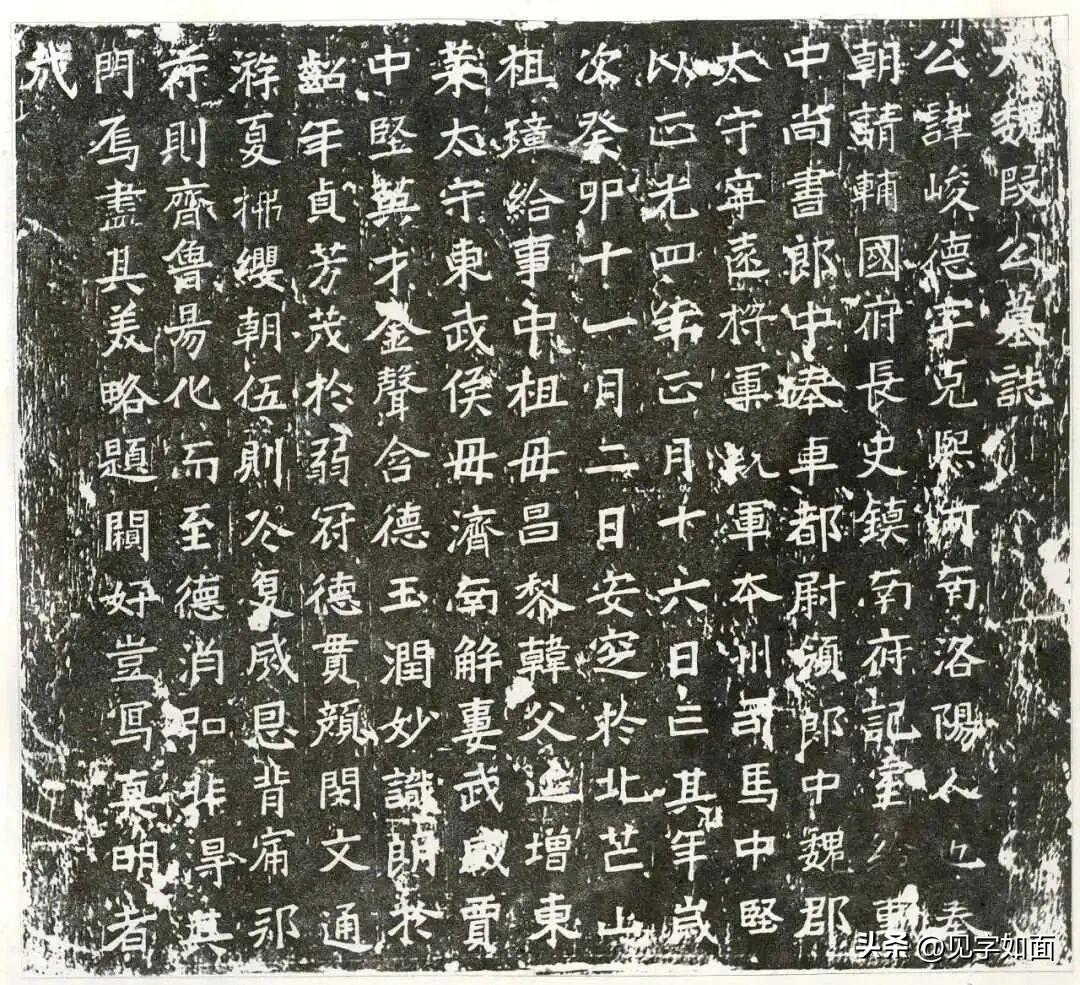 大魏段公墓誌
公諱峻德字克熙河南洛陽人也奉
朝請輔國府長史鎮南府記室給事
中尚書郎中奉車都尉領郎中魏郡
太守寧遠將軍軍本州司馬中堅
以正光四年正月十六日亡其年歲
次癸卯十一月二日安窆於北芒山
祖瓊給事中祖母昌黎韓父遊增東
萊太守東武侯母濟南解妻武威賈
中堅英才金聲含德玉潤妙識朗於
齠年貞芳茂於弱冠德貫顏閔文通
游夏拂纓朝伍則尒夏威思背甯邪
荐則齊魯易化而至德消弘非尋其
門焉盡其美略題闕好豈寫真明者
哉
头条 @见字如面